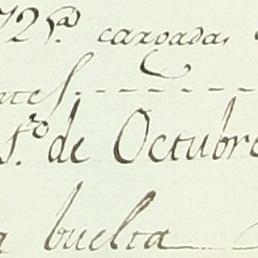 72ª cargadas
ntes
1.ro de Octubre
a buelta